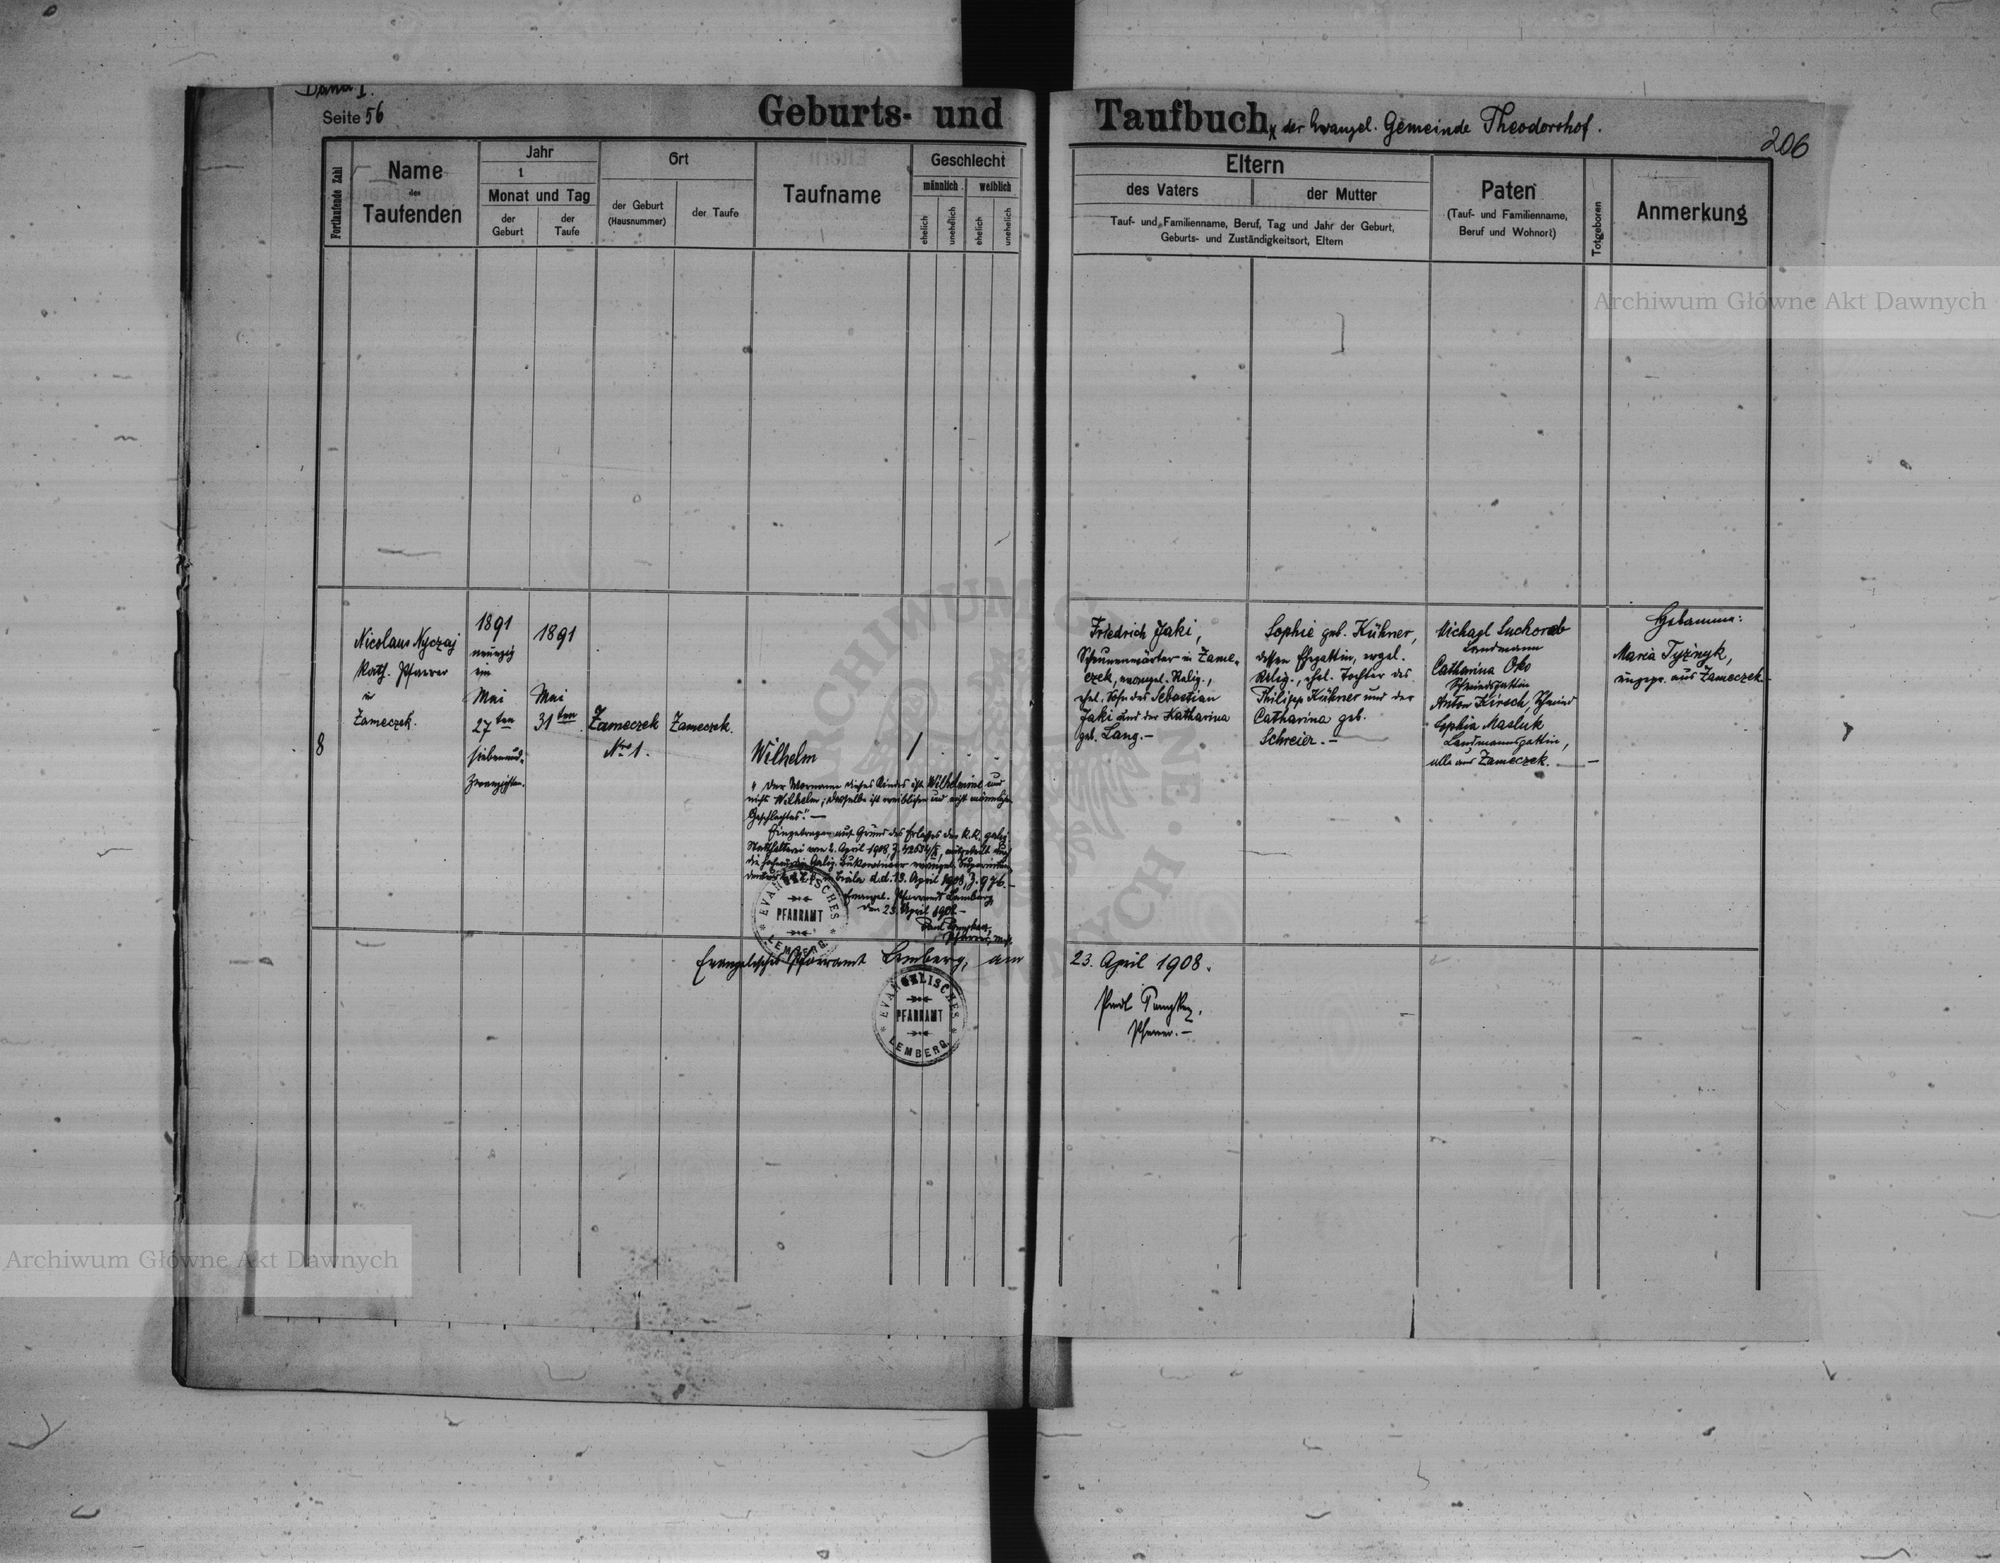 Band I.
Seite 56
Geburts- und Taufbuch der Evangel. Gemeinde Theodorshof.
206
Fortlaufende Zahl
Name
des
Taufenden
Jahr
1
Monat und Tag
der
Geburt
der
Taufe
Ort
der Geburt
(Hausnummer)
der Taufe
Taufname
Geschlecht
männlich
weiblich
ehelich
unehelich
ehelich
unehelich
Eltern
des Vaters
der Mutter
Tauf- und Familienname, Beruf, Tag und Jahr der Geburt,
Geburts- und Zuständigkeitsort, Eltern
Paten
(Tauf- und Familienname,
Beruf und Wohnort)
Totgeboren
Anmerkung
8
Nicolaus Nyczaj
Kath. Pfarrer
in
Zameczek.
1891
neunzig
ein
Mai
27ten
siebenund-
zwanzigsten.
1891
Mai
31ten
Zameczek
Nro 1.
Zameczek.
Wilhelm
/
"Der Vorname dieses Kindes ist Wilhelmine und
nicht Wilhelm; dasselbe ist weiblichen und nicht männlichen
Geschlechtes." —
Eingetragen auf Grund des Erlasses der k.k. galiz.
Statthalterei vom 2. April 1908, Z.
Biala d.d. 13. April 1908, Z. 976. —
Evangel. Pfarramt Lemberg,
den 23. April 1908. —
Pfarrer
EVANGELISCHES
PFARRAMT
LEMBERG
Friedrich Jaki,
Scheunenwärter in Zame-
czek, evangel. Relig.,
ehel. Sohn des Sebastian
Jaki und der Katharina
geb. Lang. —
Sophie geb. Kühner,
dessen Ehegattin, evgel.
Relig., ehel. Tochter des
Philipp Kühner und der
Catharina geb.
Schreier. —
Michael Suchorab
Landmann
Catharina Oko
Schmiedsgattin
Anton Kirsch, Schmied
Sophia Masluk
Landmannsgattin,
alle aus Zameczek. —
—
Hebamme:
Maria Tyźnyk,
ungepr. aus Zameczek.
Evangelisches Pfarramt Lemberg, am 23. April 1908.
EVANGELISCHES
PFARRAMT
LEMBERG
Pfarrer. —
Archiwum Główne Akt Dawnych
Archiwum Główne Akt Dawnych